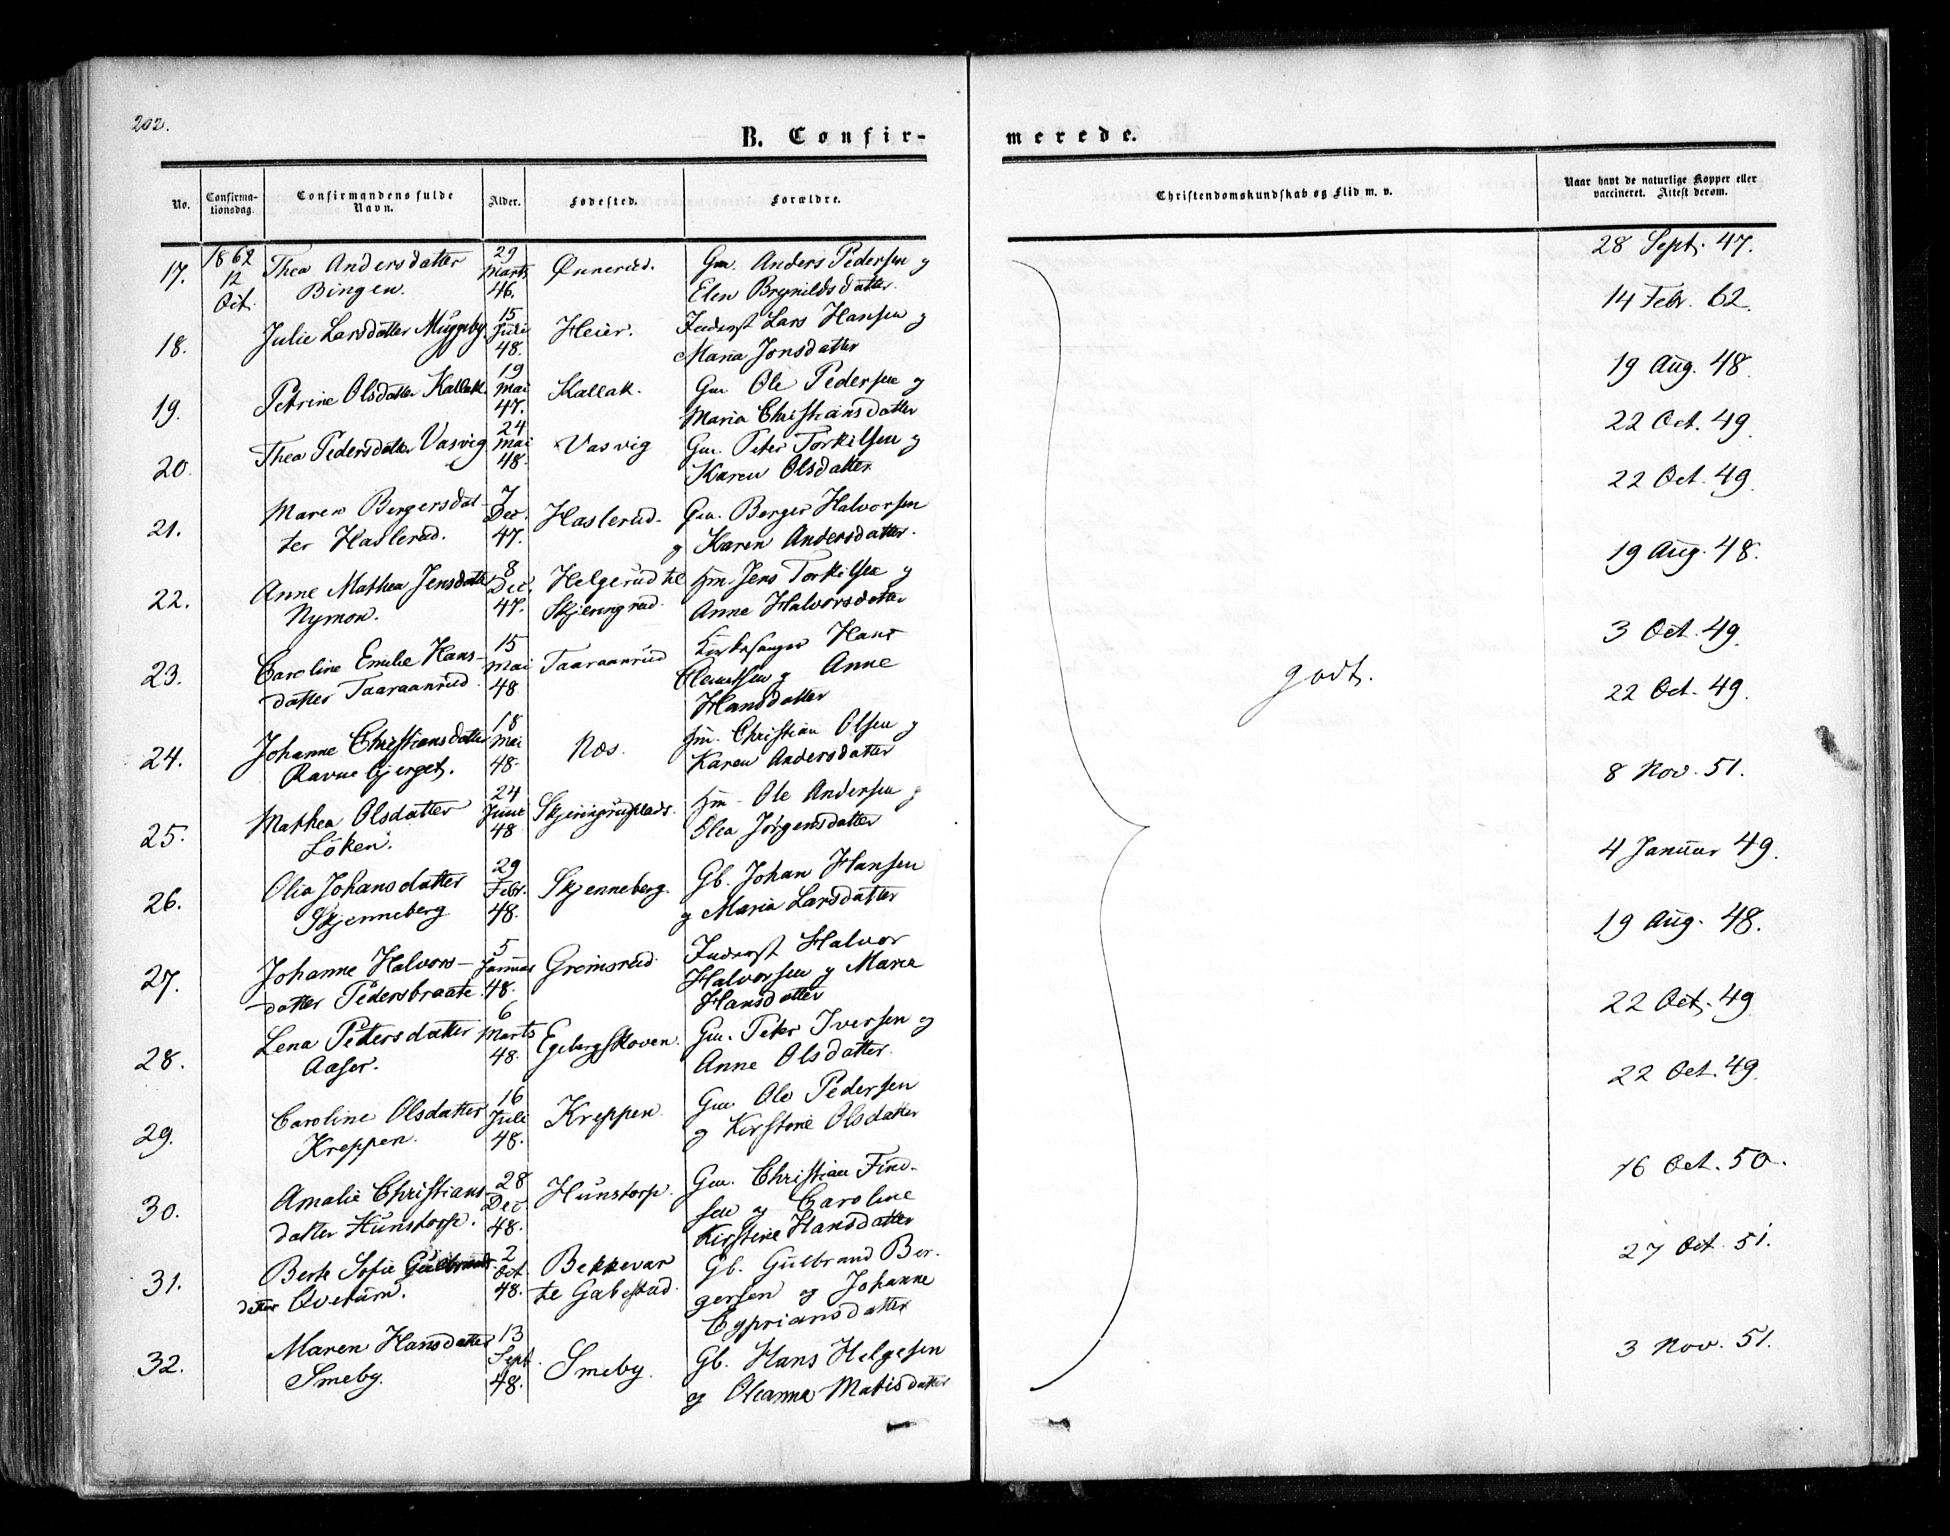 202.
B. Confirmerede.
No. Confirmationsdag. Confirmandens fulde Navn. Alder. Fødested. Forældre. Christendomskundskab og Flid m. v. Naar havt de naturlige Kopper eller vaccineret. Attest derom.
17. 1862 12 Oct. Thea Andersdatter Bingen. 29 Marts 46. Önnerud. Gm. Anders Pedersen og Elen Brynildsdatter. 28 Sept. 47.
18. Julie Larsdatter Myggeby. 15 Juli 48. Heier. Inderst Lars Hansen og Maria Jonsdatter 14 Febr. 62.
19. Petrine Olsdatter Kallak. 19 Mai 47. Kallak. Gm. Ole Pedersen og Maria Christiansdatter 19 Aug. 48.
20. Thea Pedersdatter Vasvig 24 Mai 48. Vasvig Gm. Peter Torkilsen og Karen Olsdatter 22 Oct. 49.
21. Maren Bergersdatter Haslerud. 7 Dec. 47. Haslerud. Gm. Berger Halvorsen og Karen Andersdatter. 22 Oct. 49.
22. Anne Mathea Jensdatter Nymon. 8 Dec. 47. Helgerud te Skjeringrud. Hm. Jens Torkilsen og Anne Halvorsdatter 19 Aug. 48.
23. Caroline Emilie Hansdatter Taaraanrud. 15 Mai 48 Taaraanrud Kirkesanger Hans Clemetsen og Anne Hansdatter godt. 3 Oct. 49.
24. Johanne Christiansdatter Ravnebjerget. 18 Mai 48. Næs. Hm. Christian Olsen og Karen Andersdatter 22 Oct. 49.
25. Mathea Olsdatter Löken. 24 Juni 48 Skjeringrudplads. Hm. Ole Andersen og Olea Jörgensdatter 8 Nov. 51.
26. Olia Johansdatter Skjenneberg 29 Febr. 48. Skjenneberg. Gb. Johan Hansen og Maria Larsdatter 4 Januar 49.
27. Johanne Halvorsdatter Pedersbraate. 5 Januar 48. Gromsrud Inderst Halvor Halvorsen og Maria Hansdatter 19 Aug. 48.
28. Lena Petersdatter Aaser. 6 Marts 48. Egebergskoven. Gm. Peter Iversen og Anne Olsdatter. 22 Oct. 49
29. Caroline Olsdatter Kreppen. 16 Juli 48. Kreppen. Gm. Ole Pedersen og Kirstine Olsdatter 22 Oct. 49.
30. Amalie Christiansdatter Hunstorp. 28 Dec. 48. Hunstorp. Gm. Christian Findsen og Caroline Kirstine Hansdatter 16 Oct. 50.
31. Berte Sofie Gulbrandsdatter Qvetum. 2 Oct. 48. Bekkevar te Gabestad. Gb. Gulbrand Bergersen og Johanne Cypriansdatter 27 Oct. 51.
32. Maren Hansdatter Smeby. 13 Sept. 48. Smeby. Gb. Hans Helgesen og Oleanna Matisdatter 3 Nov. 51.